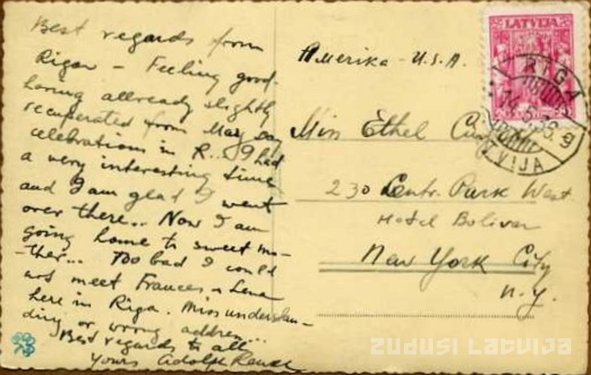 Best regards from
Riga - Feeling good
having allready slightly
recuperated from May Day
celebrations in R... I had
a very interesting time
and I am glad I went
over there.. Now I am
going home to sweet mo-
ther... Too bad I could
not meet Frances + Lena
here in Riga. Misunderstan-
ding or wrong address...
Best regards to all
Yours Adolph
Америка - U.S.A.
Miss Ethel
230 Centr. Park West
Hotel Bolivar
New York City
N.Y.
LATVIJA
RIGA
LATVIJA
ZUDUSI LATVIJA